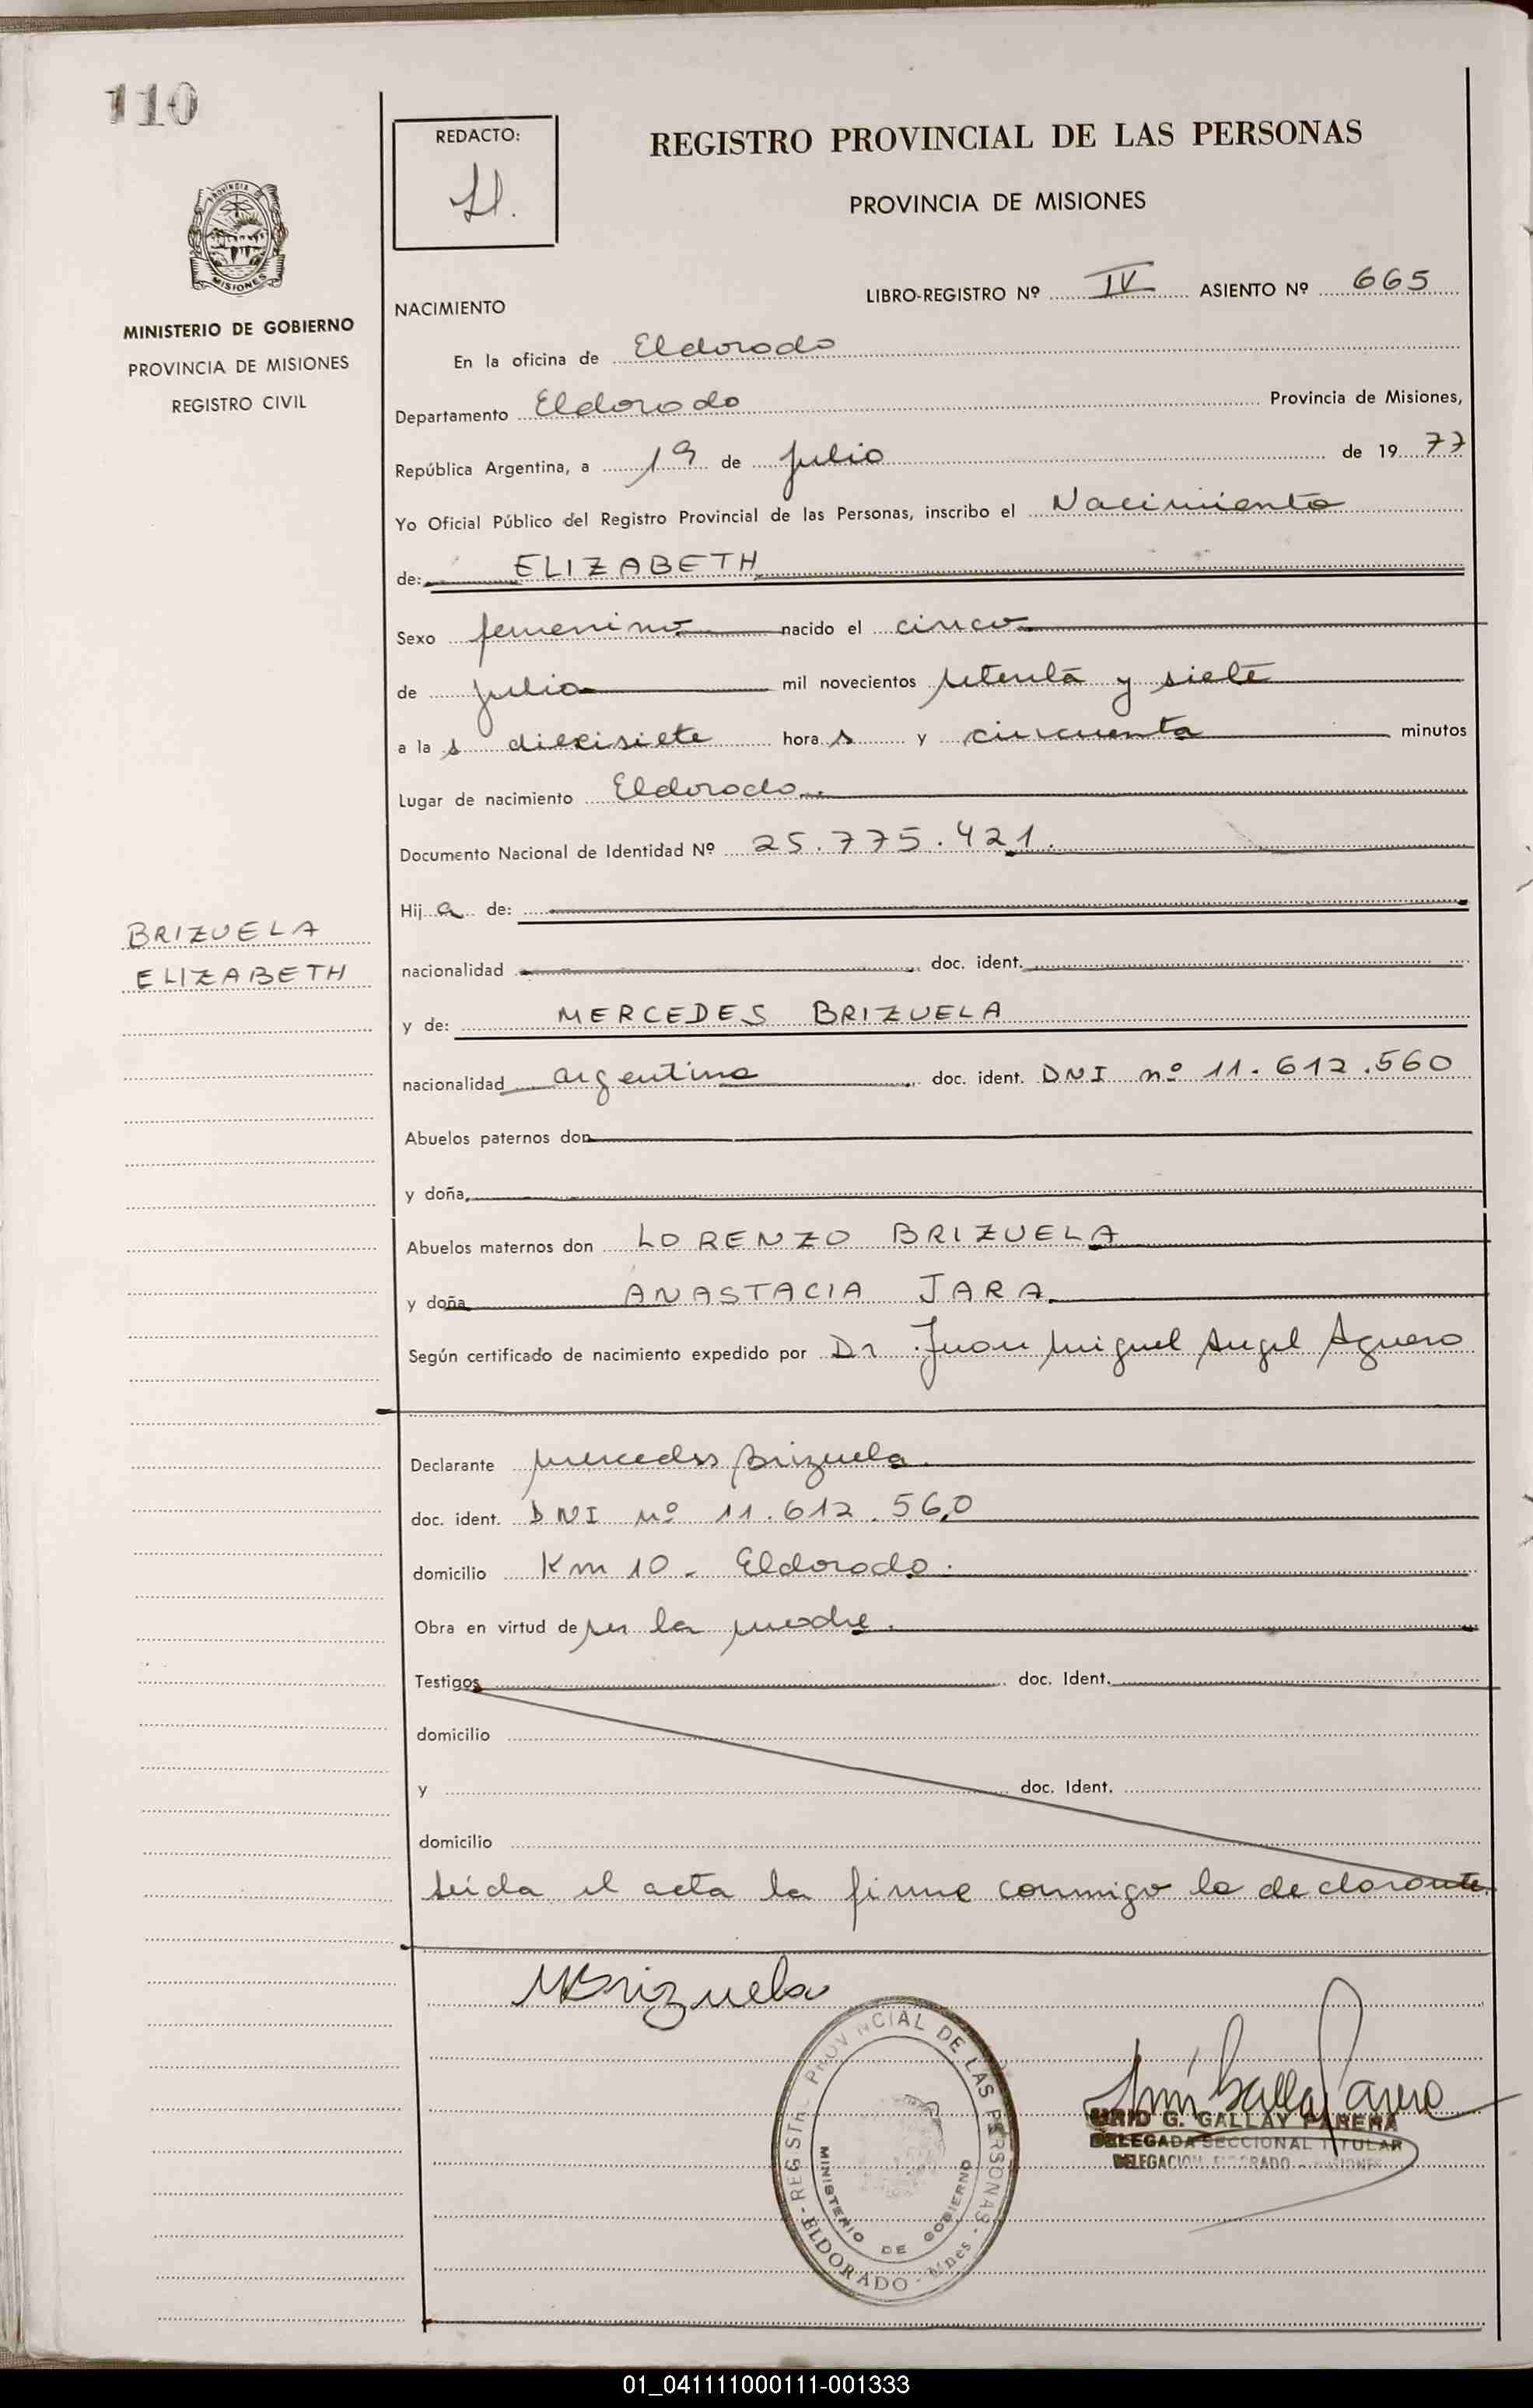 110
REDACTO:
REGISTRO PROVINCIAL DE LAS PERSONAS
PROVINCIA DE MISIONES
MISIONES
MINISTERIO DE GOBIERNO
PROVINCIA DE MISIONES
REGISTRO CIVIL
LIBRO-REGISTRO Nº IV ASIENTO Nº 665
NACIMIENTO
En la oficina de Eldorado
Departamento Eldorado Provincia de Misiones,
República Argentina, a 19 de julio de 19 77
Yo Oficial Público del Registro Provincial de las Personas, inscribo el Nacimiento
de: ELIZABETH
Sexo femenino nacido el cinco
de julio mil novecientos setenta y siete
a la s diecisiete hora s y cincuenta minutos
Lugar de nacimiento Eldorado.
Documento Nacional de Identidad Nº 25.775.421.
Hij a de:
BRIZUELA
ELIZABETH
nacionalidad doc. ident.
y de: MERCEDES BRIZUELA
nacionalidad argentina doc. ident. DNI nº 11.612.560
Abuelos paternos don
y doña
Abuelos maternos don LORENZO BRIZUELA
y doña ANASTACIA JARA
Según certificado de nacimiento expedido por Dr. Juan Miguel Angel Aguero
Declarante Mercedes Brizuela.
doc. ident. DNI Nº 11.612.560
domicilio Km 10 - Eldorado.
Obra en virtud de ser la madre.
Testigos doc. Ident.
domicilio
y doc. Ident.
domicilio
Leida el acta la firma conmigo la declarante.
MBrizuela
PROVINCIAL DE LAS PERSONAS
MINISTERIO DE GOBIERNO
ELDORADO - Mnes
G. GALLAY PARERA
DELEGADA SECCIONAL TITULAR
DELEGACION ELDORADO - MISIONES
01_041111000111-001333